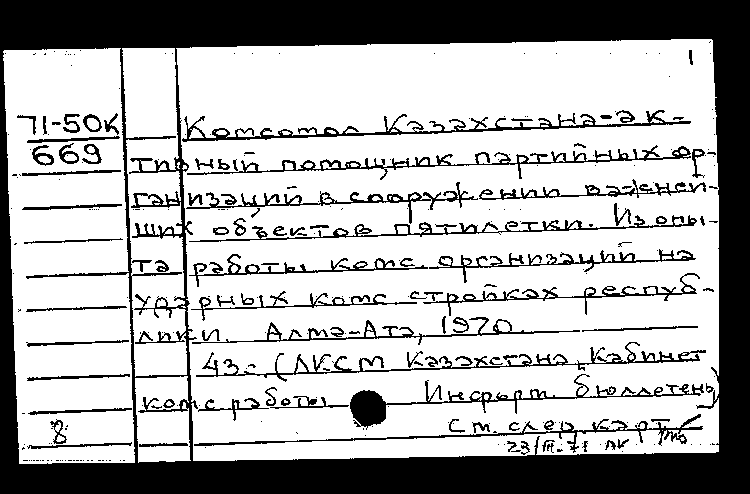 1
71-50К
669
Комсомол Казахстана-ак-
тивный помощник партийных ор-
ганизаций в сооружении важней-
ших объектов пятилетки. Из опы-
та работы комс. организаций на
ударных комс. стройках респуб-
лики. Алма-Ата, 1970.
43с. (ЛКСМ Казахстана. Кабинет
комс работы Информ. бюллетень)
8 См. след. карт.
23/III-71